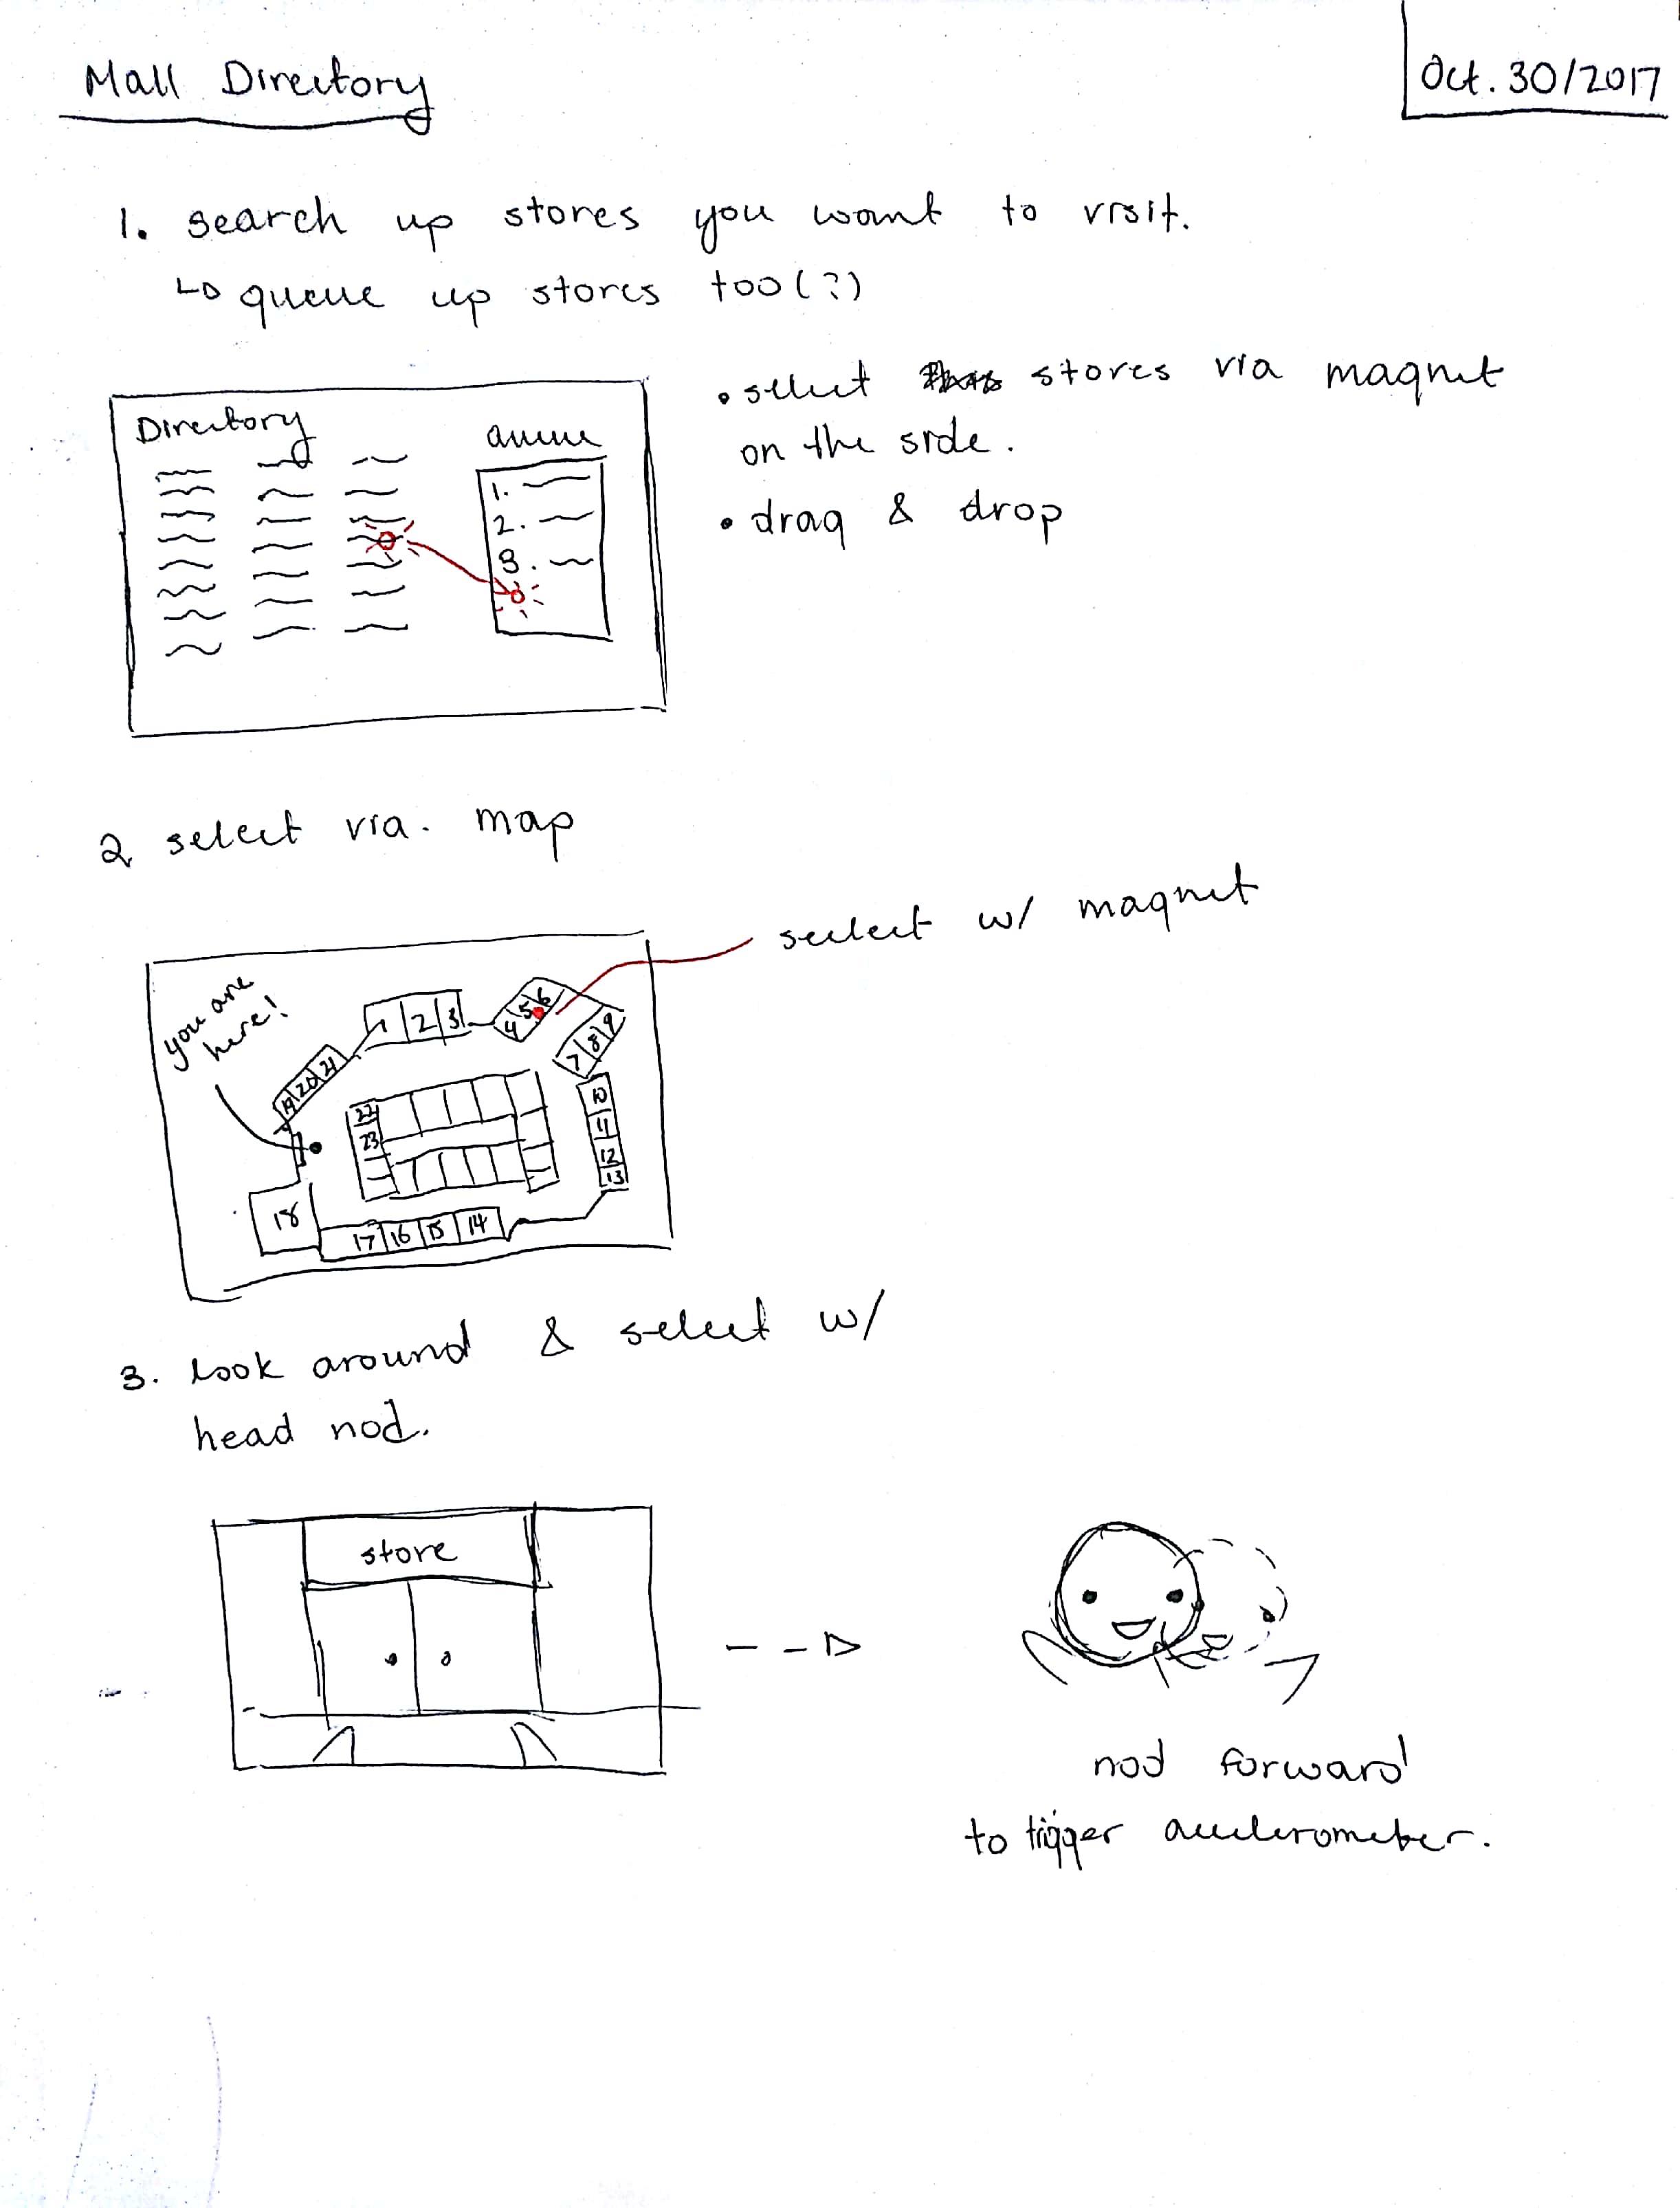 Mall Directory
Oct. 30/2017
1. search up stores you want to visit.
queue up stores too(?)
Directory
queue
1.
2.
3.
• select stores via magnet
on the side.
• drag & drop
2 select via. map
select w/ magnet
you are
here!
1 2 3
4 5 6
7 8 9
10
11
12
13
14
15
16
17
18
19 20 21
22
23
3. look around & select w/
head nod.
store
nod forward
to trigger accelerometer.